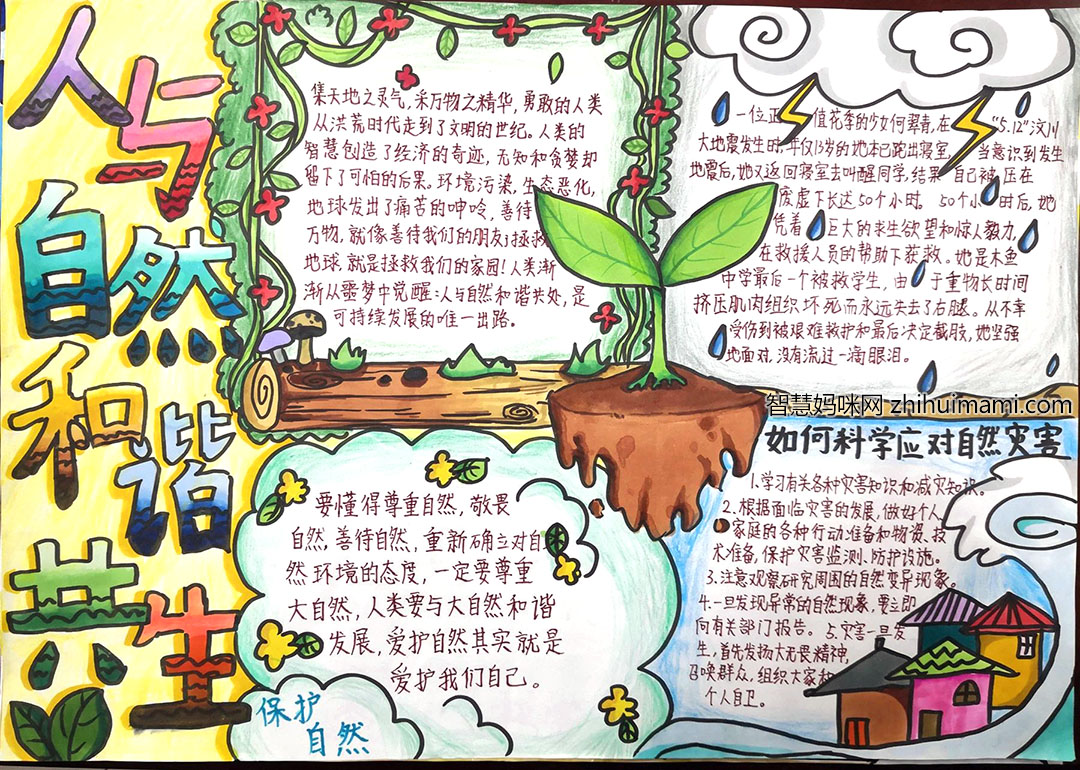 人与自然和谐共生
集天地之灵气，采万物之精华，勇敢的人类
从洪荒时代走到了文明的世纪。人类的
智慧创造了经济的奇迹，无知和贪婪却
留下了可怕的后果。环境污染，生态恶化，
地球发出了痛苦的呻吟，善待
万物，就像善待我们的朋友；拯救
地球，就是拯救我们的家园！人类渐
渐从噩梦中觉醒：人与自然和谐共处，是
可持续发展的唯一出路。
一位正值花季的少女何翠青，在"5.12"汶川
大地震发生时，年仅13岁的她本已跑出寝室，当意识到发生
地震后，她又返回寝室去叫醒同学，结果自己被压在
废虚下长达50个小时。50个小时后，她
凭着巨大的求生欲望和惊人毅力，
在救援人员的帮助下获救。她是木鱼
中学最后一个被救学生，由于重物长时间
挤压肌肉组织坏死而永远失去了右腿。从不幸
受伤到被艰难救护和最后决定截肢，她坚强
地面对，没有流过一滴眼泪。
智慧妈咪网 zhihuimami.com
如何科学应对自然灾害
1.学习有关各种灾害知识和减灾知识。
2.根据面临灾害的发展，做好个人
家庭的各种行动准备和物资、技
术准备，保护灾害监测、防护设施。
3.注意观察研究周围的自然变异现象。
4.一旦发现异常的自然现象，要立即
向有关部门报告。5.灾害一旦发
生，首先发扬大无畏精神，
召唤群众，组织大家和
个人自卫。
要懂得尊重自然，敬畏
自然，善待自然，重新确立对自
然环境的态度，一定要尊重
大自然，人类要与大自然和谐
发展，爱护自然其实就是
爱护我们自己。
保护
自然